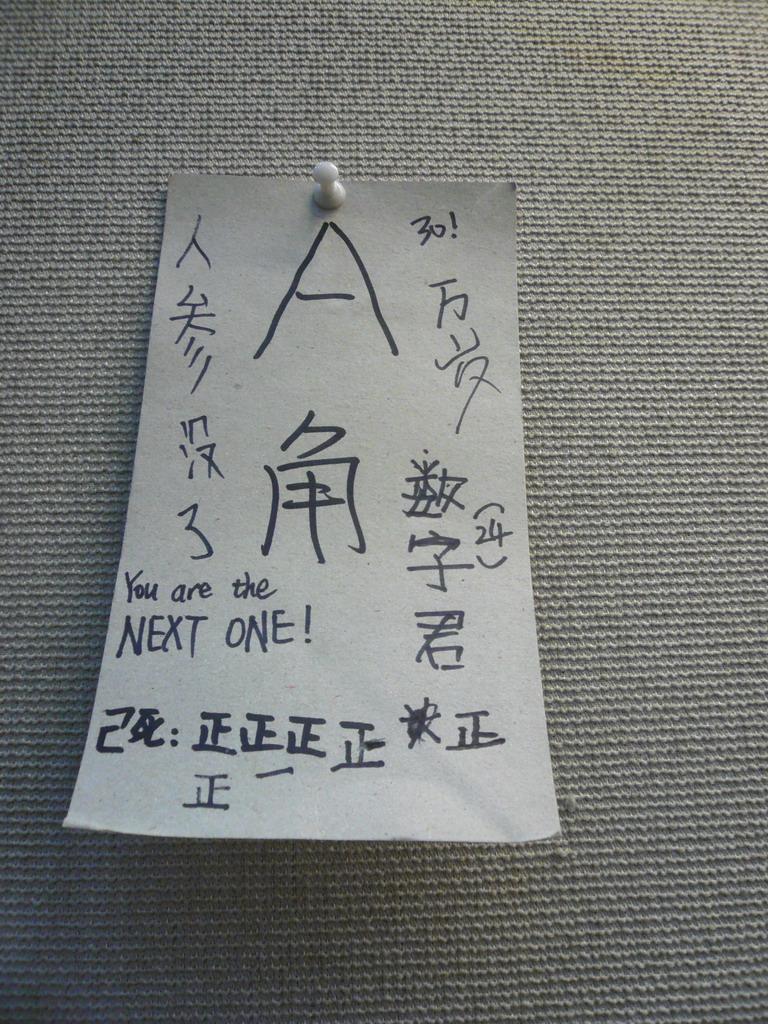 A
角
人参没了
30!
万岁
数字君
(24)
You are the
NEXT ONE!
已死: 正正正正 正
正一